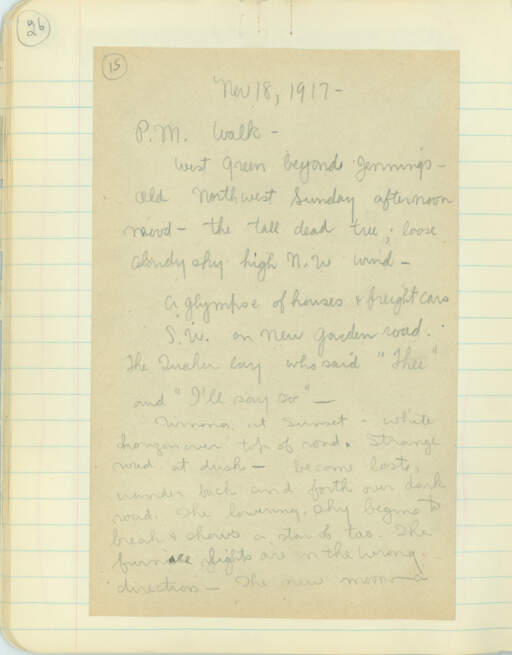 26
15
Nov 18, 1917 -
P.M. Walk -
West Green beyond Jennings -
old Northwest Sunday afternoon
mood - the tall dead tree; loose
cloudy sky high N.W wind -
a glympse of houses & freight cars
S.W. on New Garden road.
The Quaker boy who said "Thee"
and "I'll say so" -
Winona at sunset - white
horizon over top of road. Strange
road at dusk - become lost,
wander back and forth over dark
road. The lowering sky begins to
break & shows a star & too. The
furnace lights are in the wrong
direction - The new moon a